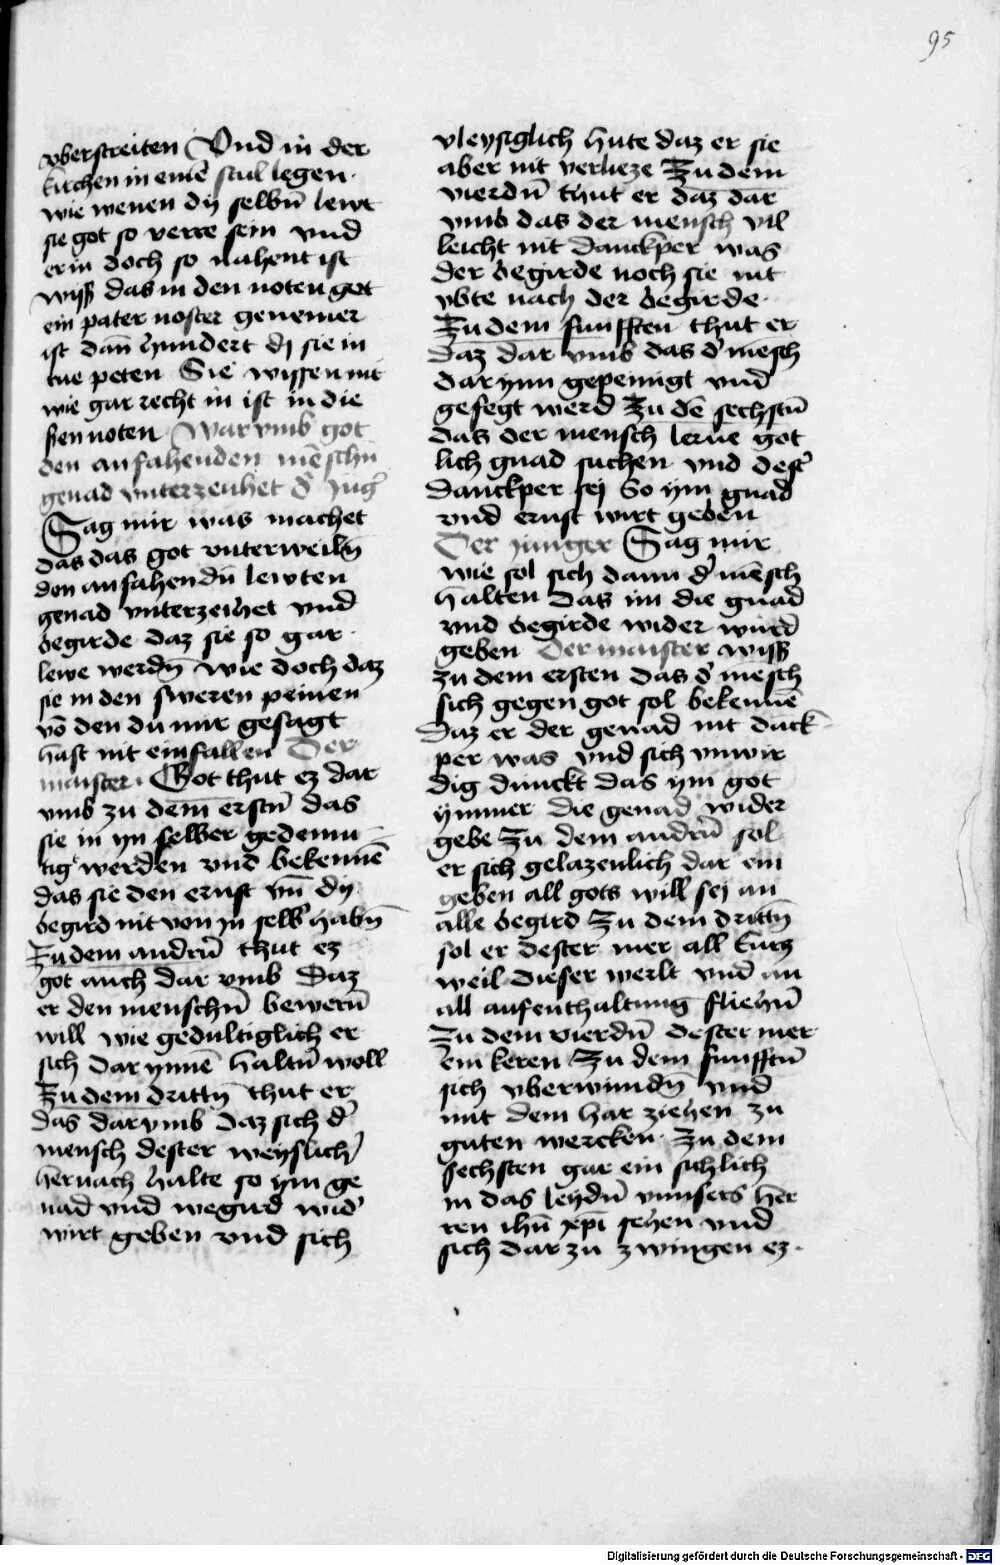 95
vberstreiten Vnd in der
kirchen in einē stul legen ·
wie wenen dy selbn̄ lewt
sie got so verre sein vnd
er in doch so nahent ist
wiss das in den noten got
ein pater noster genemer
ist dan̄ hundert dj sie in
rue peten Sie wissen nit
wie gar recht in ist in die
sen noten War vmb got
den anfahenden mēschn̄
genad vnterzeuhet d' Jūg'
Sag mir was machet
das das got vnterweiln̄
den anfahendn̄ lewten
genad vnterzeihet vnd
begirde daz sie so gar ·
lewe werdn̄ wie doch daz
sie in den sweren peinen
vō den du mir gesagt
hast nit einfallen Der
maister · Got thut ez dar
vmb zu dem erstn̄ das
sie in yn selber gedemu
tig werden vnd bekennē
das sie den ernst vn̄ dy
begird nit von in selb' habn̄
Zu dem andrn̄ thut ez
got auch dar vmb Daz
er den menschn̄ bewern̄
will wie gedultiglich er
sich dar ynnē haltn̄ woll
Zu dem drittn̄ thut er
das dar vmb daz sich d'
mensch dester weyslich'
hernach halte so ym ge
nad vnd wegird wid'
wirt geben vnd sich
vleysiglich hute daz er sie
aber nit verlieze Zu dem
vierdn̄ thut er daz dar
vmb das der mensch vil
leicht nit danckper was
der begirde noch sie nit
vbte nach der begirde ·
Zu dem funfften thut er
daz dar vmb das d' mēsch
dar ynn gepeinigt vnd
gefegt werd Zu dē sechstn̄
das der mensch lerne got
lich gnad suchen vnd dest'
danckper sej So ym gnad
vnd ernst wirt geben
Der junger Sag mir
wie sol sich dann d' mēsch
halten das im die gnad
vnd begirde wider wurd
geben Der maister wiss
zu dem ersten das d' mēsch
sich gegen got sol bekennē
daz er der genad nit dāck
per was vnd sich vnwir
dig dunckt das ym got
ymmer die genad wider
gebe Zu dem andrn̄ sol
er sich gelazenlich dar ein
geben all gots will sej an
alle begird Zu dem drittn̄
sol er dester mer all kurtz
weil dieser werlt vnd an
all aufenthaltung fliehn̄
Zu dem vierdn̄ dester mer
ein keren Zu dem funfftn̄
sich vberwindn̄ vnd
mit dem har ziehen zu
guten wercken · Zu dem
sechsten gar ein sichlich
in das leydn̄ vnnsers her
ren ihū xp̄i sehen vnd
sich dar zu zwingen ez ·
Digitalisierung gefördert durch die Deutsche Forschungsgemeinschaft - DFG